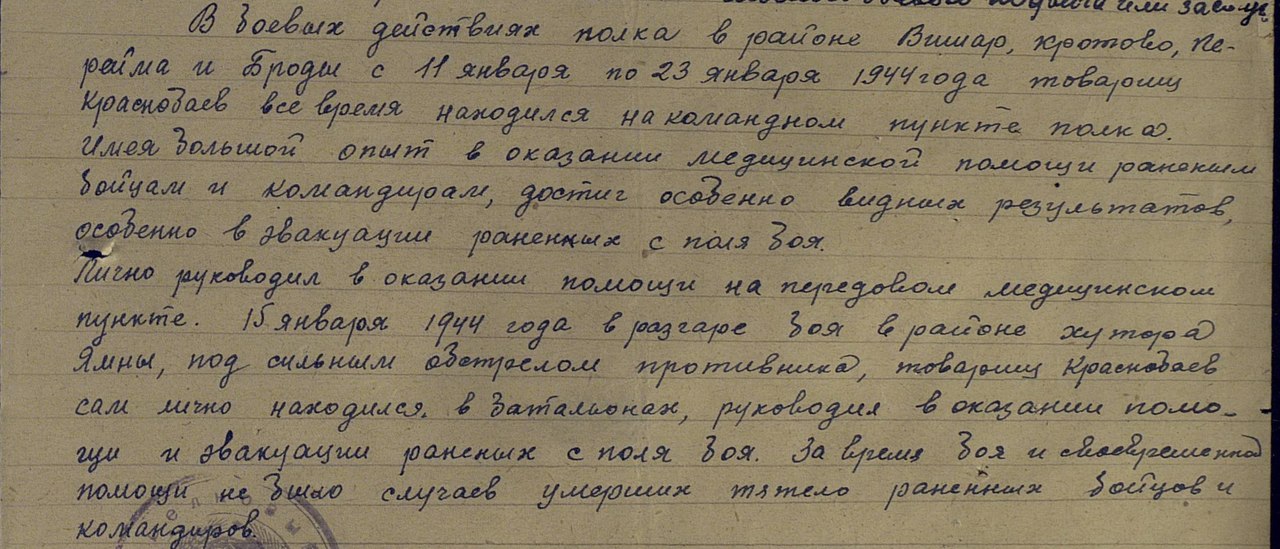 подвига или заслуг
В боевых действиях полка в районе Вишар, Кротово, Пе-
рейма и Броды с 11 января по 23 января 1944 года товарищ
Краснобаев все время находился на командном пункте полка.
Имея большой опыт в оказании медицинской помощи раненым
бойцам и командирам, достиг особенно видных результатов,
особенно в эвакуации раненных с поля боя.
Лично руководил в оказании помощи на передовом медицинском
пункте. 15 января 1944 года в разгаре боя в районе хутора
Ямны, под сильным обстрелом противника, товарищ Краснобаев
сам лично находился в батальонах, руководил в оказании помо-
щи и эвакуации раненых с поля боя. За время боя и своевременной
помощи не было случаев умерших тяжело раненных бойцов и
командиров.